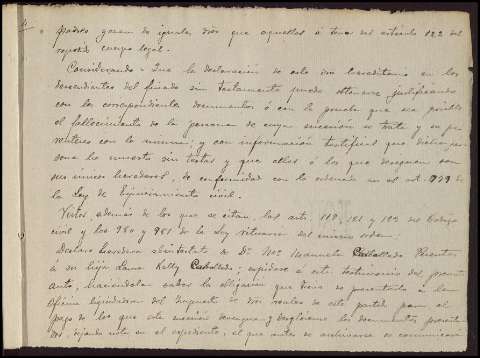 padres gozan de iguales dros que aquellos á tenor del artículo 122 del
repetido cuerpo legal.
Considerando: Que la declaracion de este dro hereditario en los
descendientes del finado sin testamento puede obtenerse justificando
con los correspondientes documentos ó con la prueba que sea posible
el fallecimiento de la persona de cuya sucesión se trata y su pa-
rentesco con la misma; y con información testifical que dicha per-
sona ha muerto sin testar y que ellos ó los que designan son
sus únicos herederos, de conformidad con lo ordenado en el art. 979 de
la Ley de Enjuiciamiento civil.
Vistos, además de los que se citan, los arts. y del Código
civil y los 980 y 981 de la Ley rituaria del mismo orden:
Declaro heredera abintestato de Dª Mª Manuela Caballeda Fuentes
á su hija Dama Kelly Caballeda; expídase á esta testimonio del presente
Auto, haciéndola saber la obligación que tiene de presentarlo á la
Oficina liquidadora del Impuesto de dros reales de este partido para el
pago de los que esta sucesión devengue y desglósense los documentos presenta-
dos, dejando nota en el expediente, el que antes de archivarse se comunicará